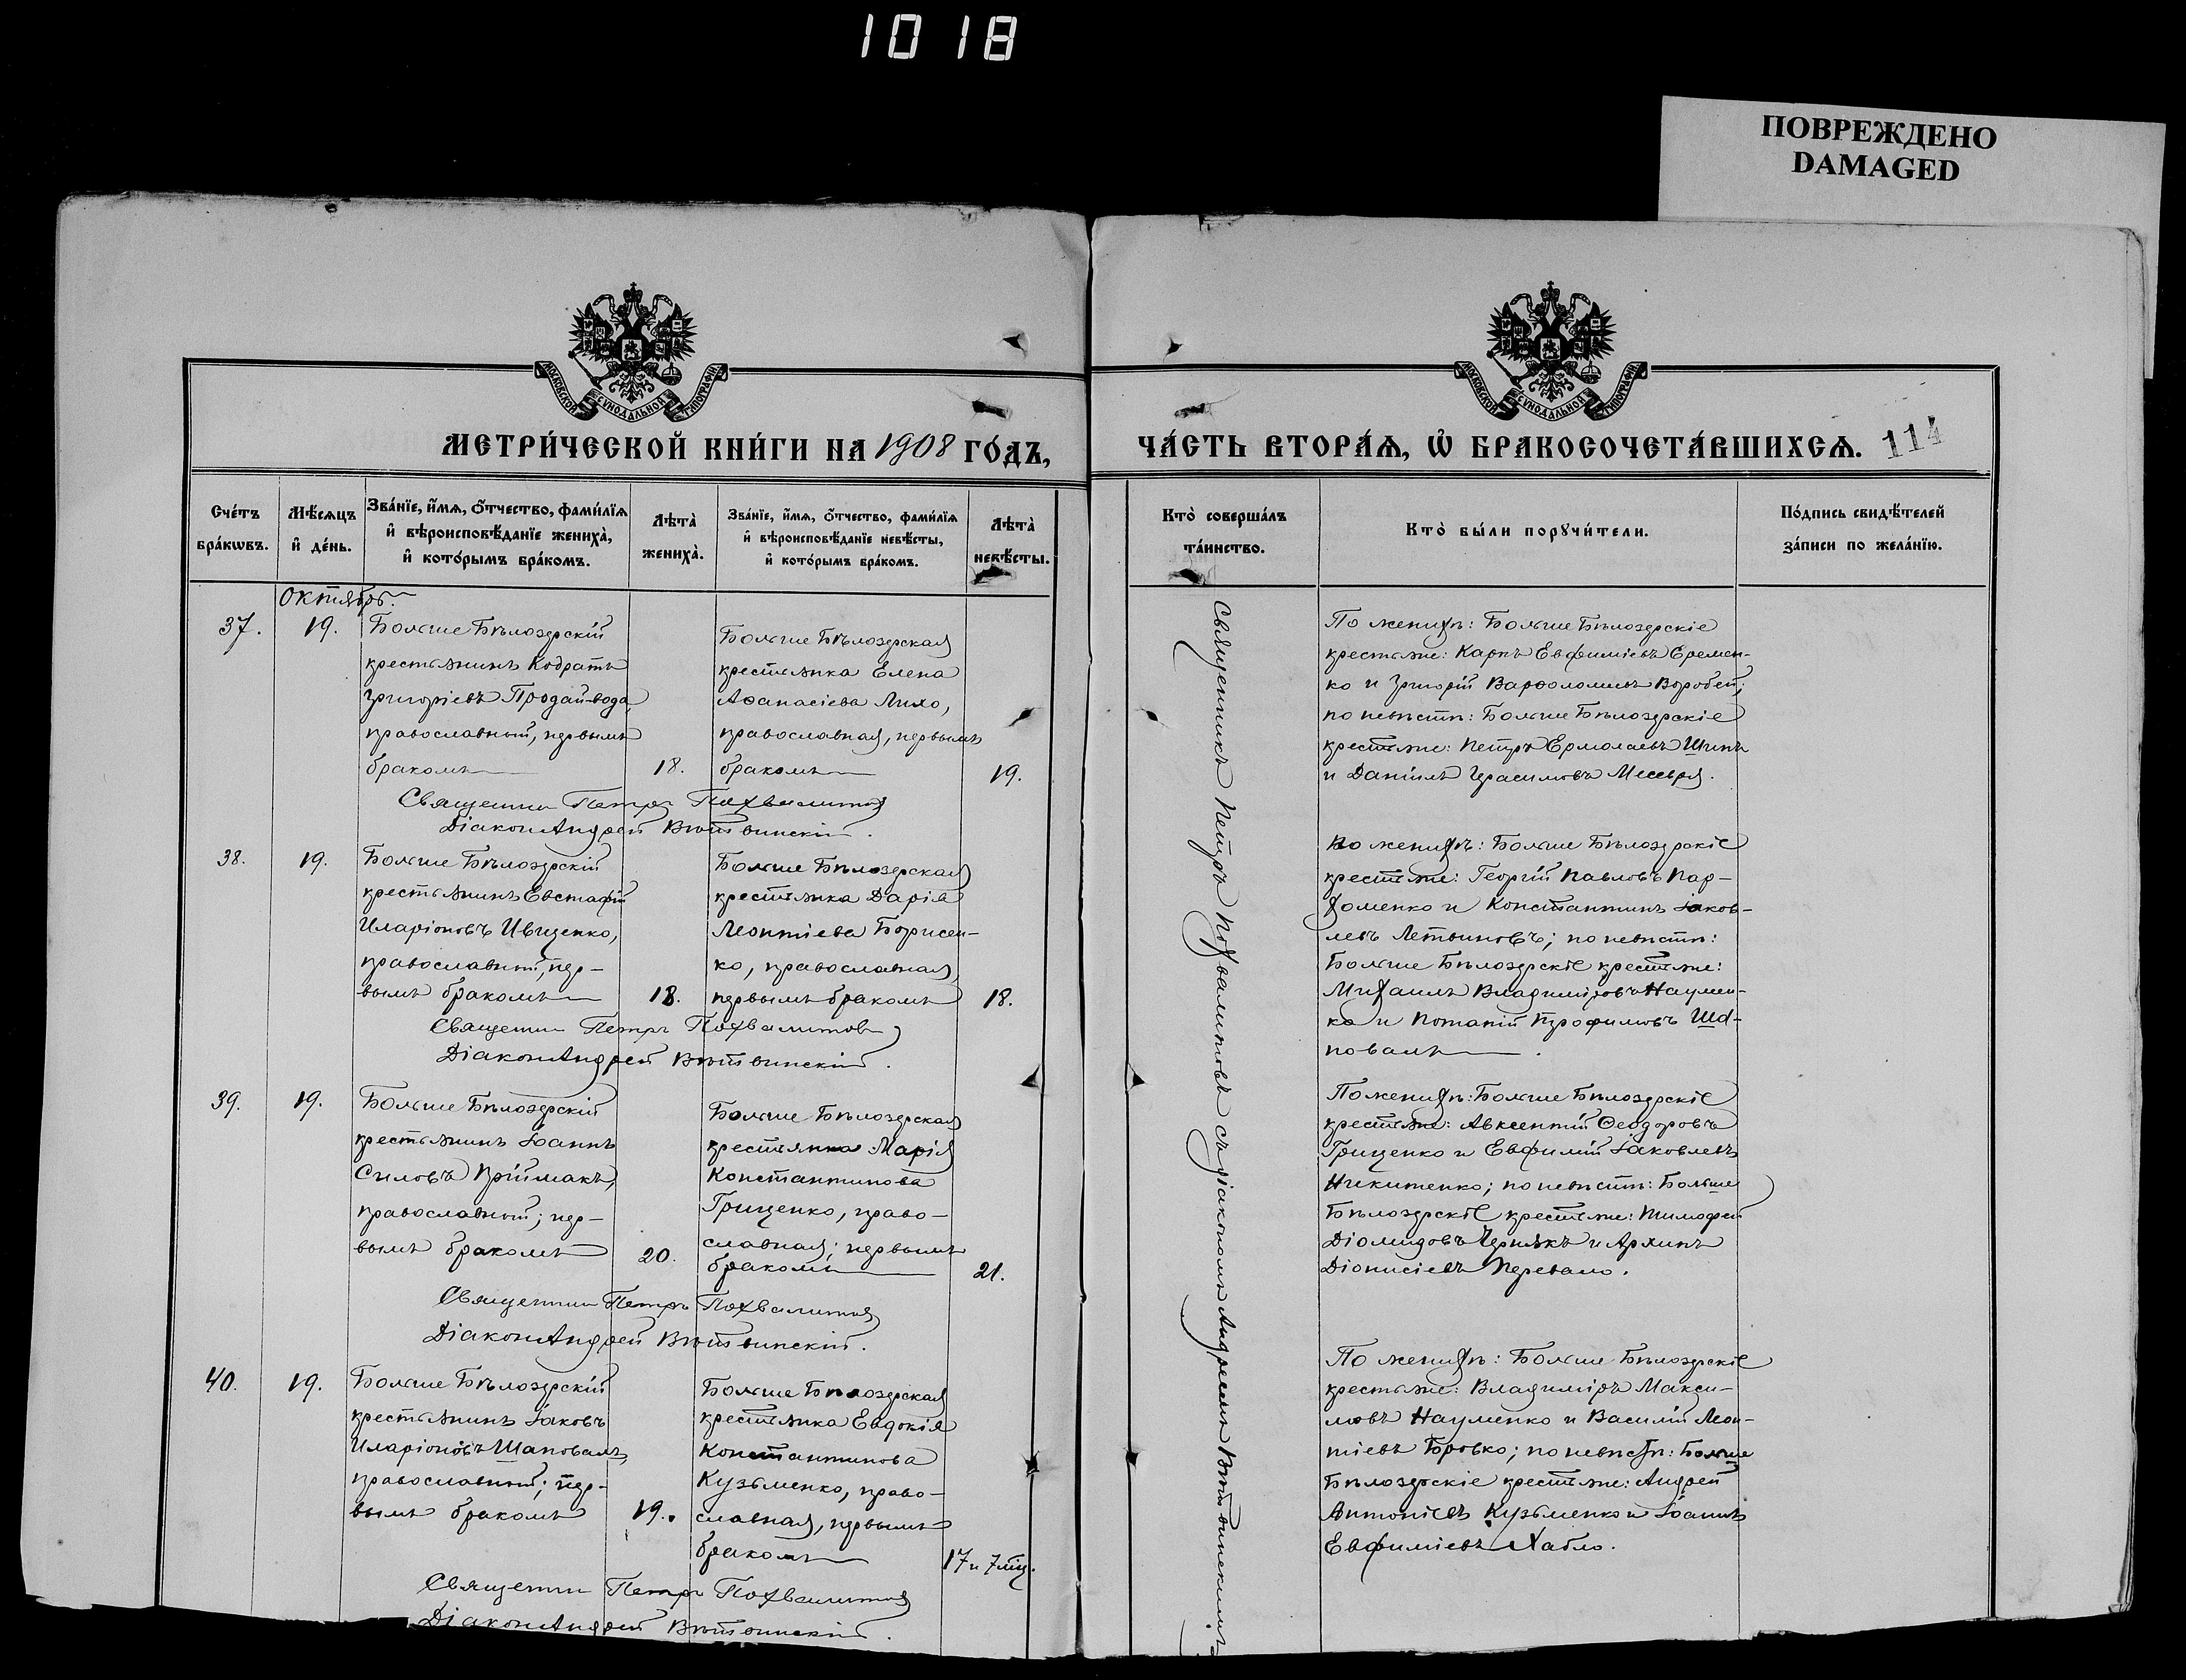 1018
ПОВРЕЖДЕНО
DAMAGED
МОСКОВСКОЙ СѴНОДАЛЬНОЙ ТИПОГРАФІИ
МЕТРИ́ЧЕСКОЙ КНИ́ГИ НА 1908 ГО́ДЪ,
Сче́тъ бра́кѡвъ.
Мѣ́сѧцъ и҆ де́нь.
Зва́нїе, и҆́мѧ, ѻ҆́тчество, фами́лїѧ
и҆ вѣроисповѣ́данїе жениха̀,
и҆ кото́рымъ бра́комъ.
Лѣ́та жениха̀.
Зва́нїе, и҆́мѧ, ѻ҆́тчество, фами́лїѧ
и҆ вѣроисповѣ́данїе невѣ́сты,
и҆ кото́рымъ бра́комъ.
Лѣ́та невѣ́сты.
Октябрь.
37.
19.
Больше Бѣлозерскій
крестьянинъ Кодратъ
Григоріевъ Продай-вода
православный, первымъ
бракомъ
18.
Больше Бѣлозерская
крестьянка Елена
Аѳанасіева Лихо,
православная, первымъ
бракомъ
19.
Священник Петръ Похвалитов
Діаконъ Андрей Вѣтвинскій.
38.
19.
Больше Бѣлозерскій
крестьянинъ Евстафій
Иларіоновъ Ивщенко,
православный, пер-
вымъ бракомъ
18.
Больше Бѣлозерская
крестьянка Дарія
Леонтіева Борисен-
ко, православная,
первымъ бракомъ
18.
Священник Петръ Похвалитов
Діаконъ Андрей Вѣтвинскій.
39.
19.
Больше Бѣлозерскій
крестьянинъ Іоаннъ
Силовъ Пріймакъ,
православный; пер-
вымъ бракомъ
20.
Больше Бѣлозерская
крестьянка Марія
Константинова
Гриценко, право-
славная; первымъ
бракомъ
21.
Священник Петръ Похвалитов
Діаконъ Андрей Вѣтвинскій.
40.
19.
Больше Бѣлозерскій
крестьянинъ Іаковъ
Иларіоновъ Шаповалъ,
православный; пер-
вымъ бракомъ
19.
Больше Бѣлозерская
крестьянка Евдокія
Константинова
Кузьменко, право-
славная, первымъ
бракомъ
17 и 7 мѣц.
Священник Петръ Похвалитов
Діаконъ Андрей Вѣтвинскій.
МОСКОВСКОЙ СѴНОДАЛЬНОЙ ТИПОГРАФІИ
ЧА́СТЬ ВТОРА́Ѧ, Ѡ҆ БРАКОСОЧЕТА́ВШИХСѦ.
114
Кто̀ соверша́лъ
та́инство.
Кто̀ бы́ли порꙋчи́тели.
По́дпись свидѣ́телей
за́писи по жела́нїю.
Священникъ Петръ Похвалитовъ съ діакономъ Андреемъ Вѣтвинскимъ
По женихѣ: Больше Бѣлозерскіе
крестьяне: Карпъ Евфиміевъ Еремен-
ко и Григорій Варѳоломеевъ Воробей;
по невѣстѣ: Больше Бѣлозерскіе
крестьяне: Петръ Ермолаевъ Шинъ
и Даніилъ Герасимовъ Месевря.
По женихѣ: Больше Бѣлозерскіе
крестьяне: Георгій Павловъ Пар-
хоменко и Константинъ Іаков-
левъ Летвиновъ; по невѣстѣ:
Больше Бѣлозерскіе крестьяне:
Михаилъ Владиміровъ Наумен-
ко и Потапій Трофимовъ Ша-
повалъ.
По женихѣ: Больше Бѣлозерскіе
крестьяне: Авксентій Ѳеодоровъ
Гриценко и Евфимій Іаковлевъ
Никитенко; по невѣстѣ: Больше
Бѣлозерскіе крестьяне: Тимофей
Діомидовъ Чернякъ и Архипъ
Діонисіевъ Перевало.
По женихѣ: Больше Бѣлозерскіе
крестьяне: Владиміръ Макси-
мовъ Науменко и Василій Леон-
тіевъ Бровко; по невѣстѣ: Больше
Бѣлозерскіе крестьяне: Андрей
Антоніевъ Кузьменко и Іоаннъ
Евфиміевъ Хабло.